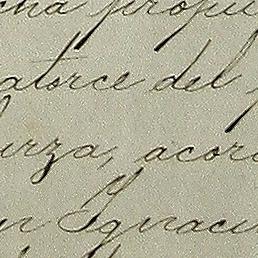 cha propu
atorce del
urza, acor
y
n Ignaci